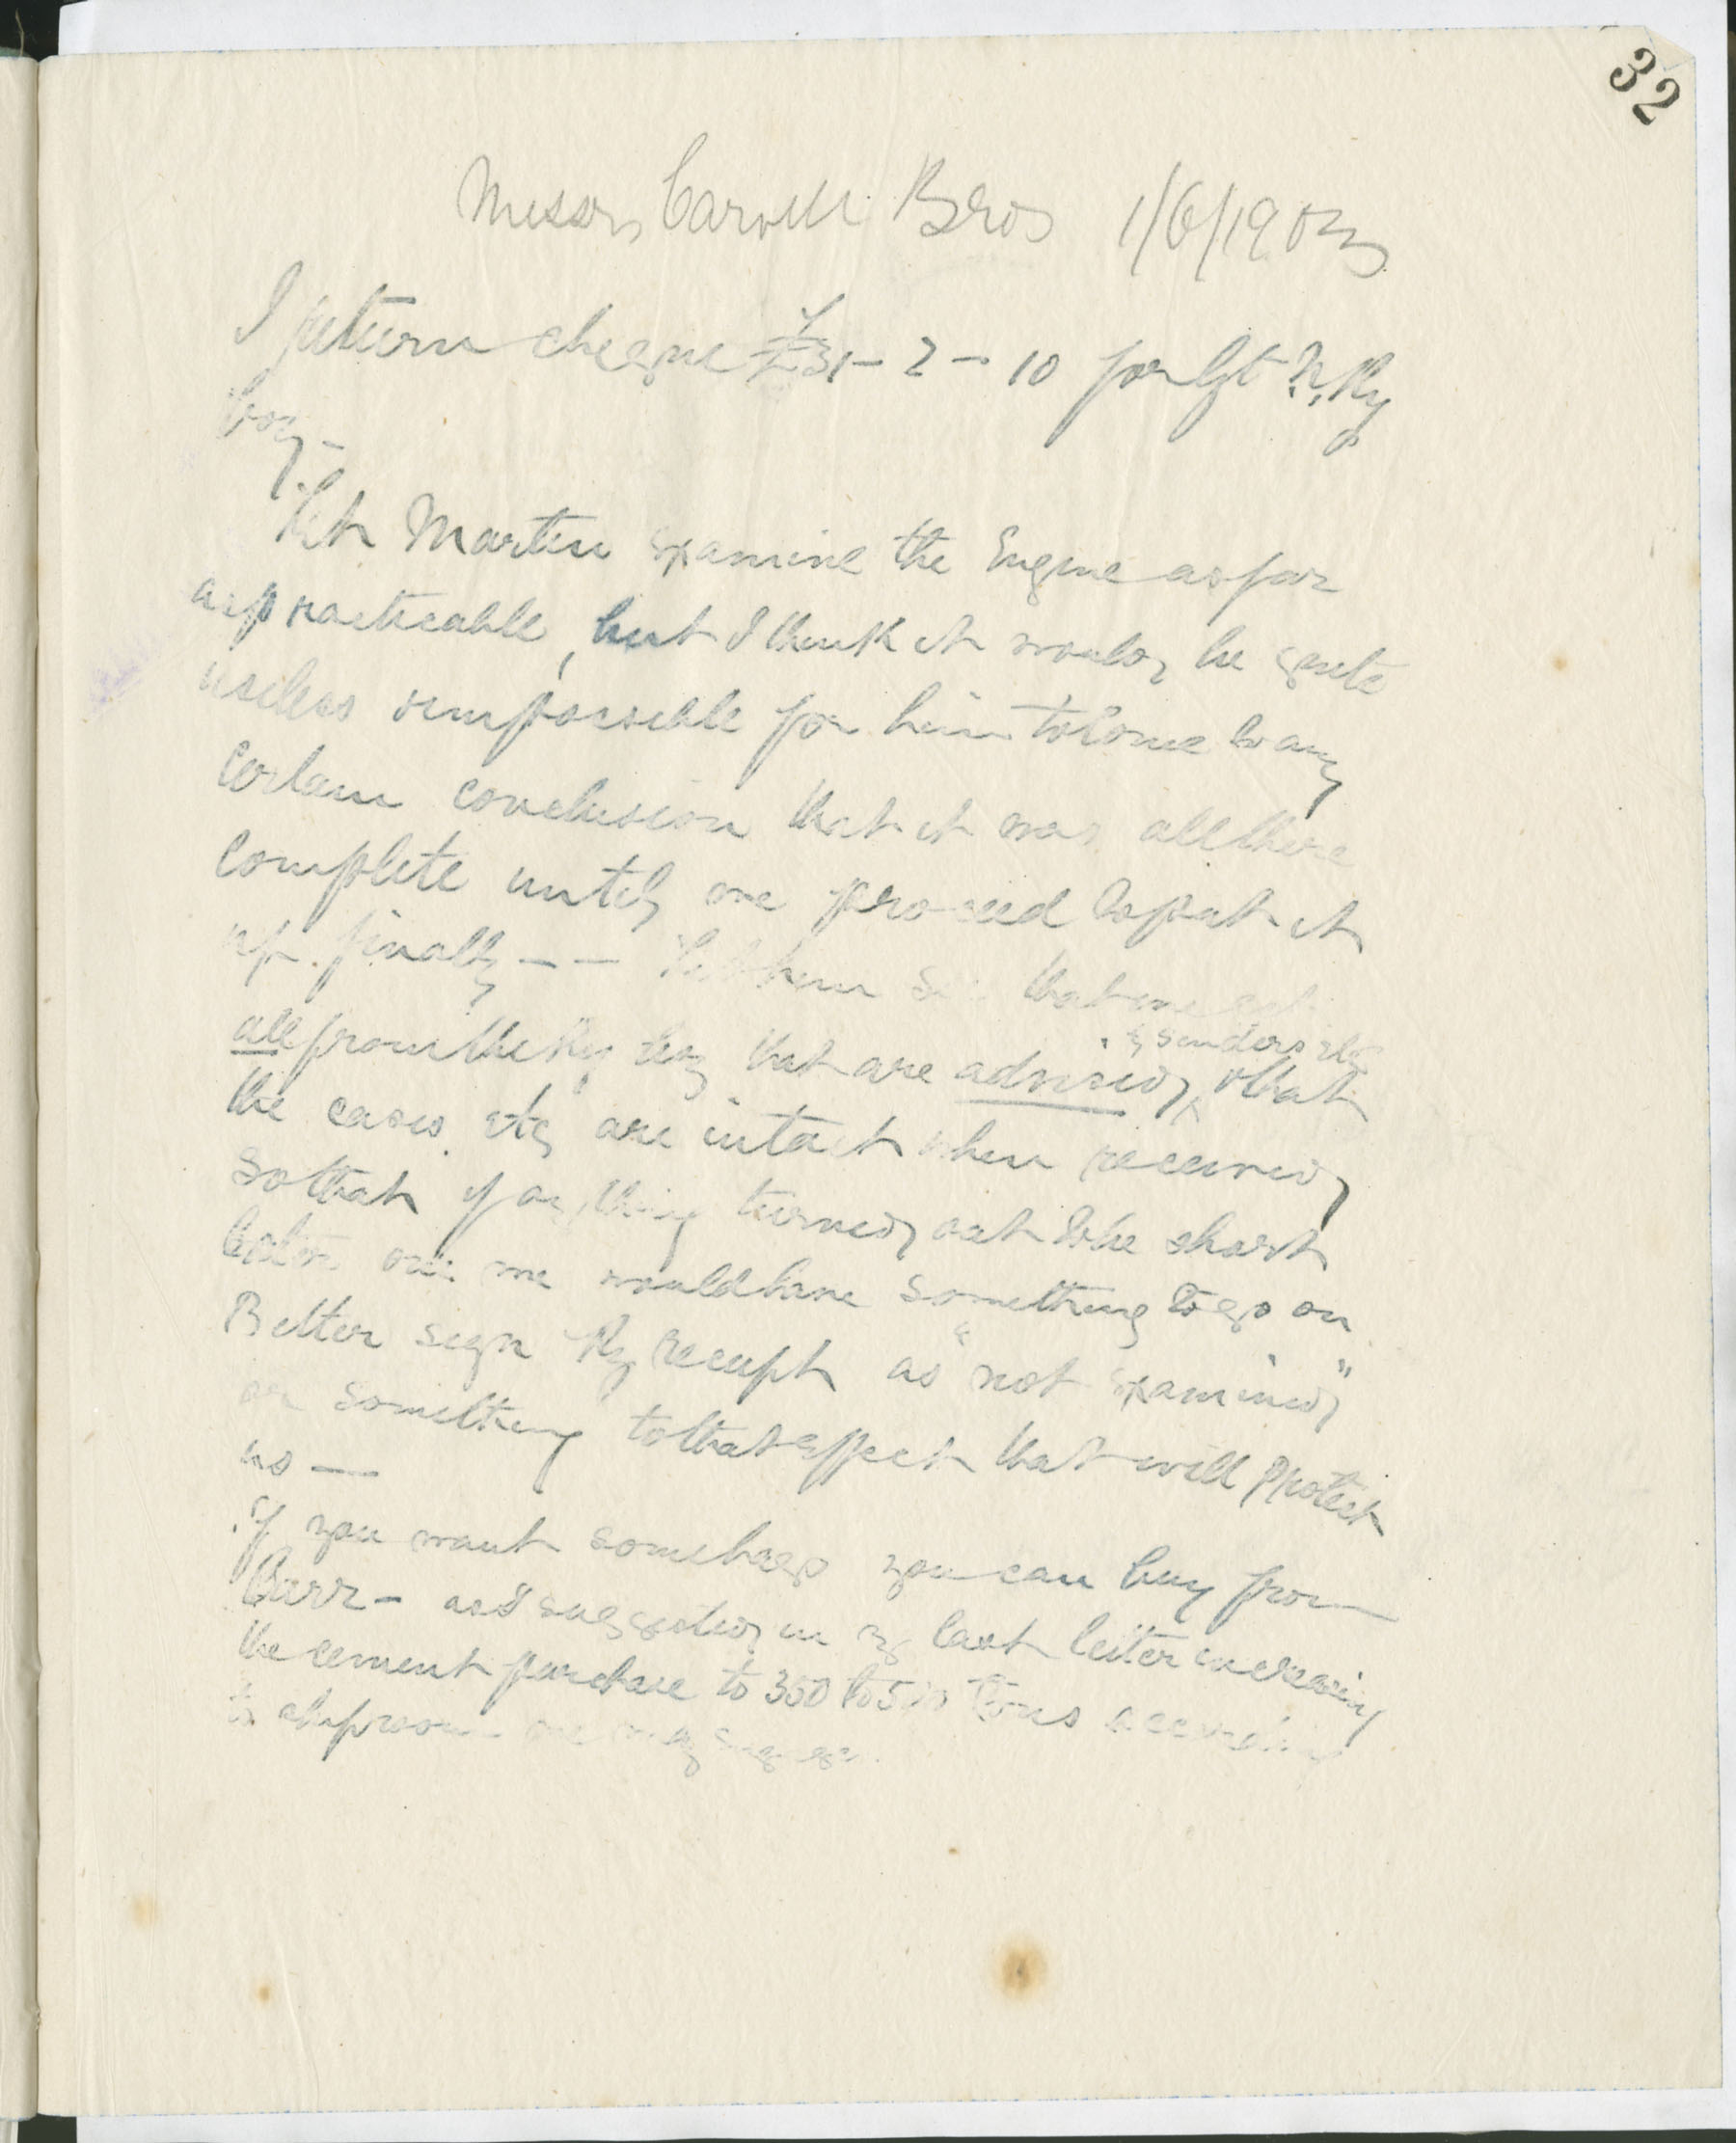 32
Messrs Carvill Bros 1/6/1903
I return cheque £31-2-10 for Gt N. Ry
Coy -
Let Martin examine the Engine as far
as practicable, but I think it would be quite
useless & impossible for him to come to any
certain conclusion that it was all there
complete until we proceed to put it
up finally - - Let him see that we get
all from the Ry Coy that are advised, & that
by senders etc
the cases etc are intact when received
so that if anything turned out to be short
later on we would have something to go on
Better sign Ry receipt as "not examined"
or something to that effect that will protect
us —
if you want some bags you can buy from
Carr - as I suggested in my last letter increasing
the cement purchase to 350 to 500 tons according
to shiproom we may